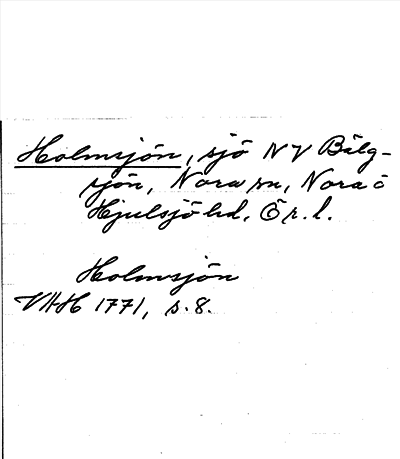 Holmsjön, sjö NV Bälg-
sjön, Nora sn, Nora o
Hjulsjö hd, Ör. l.
Holmsjön
VAH 1771, s. 8.